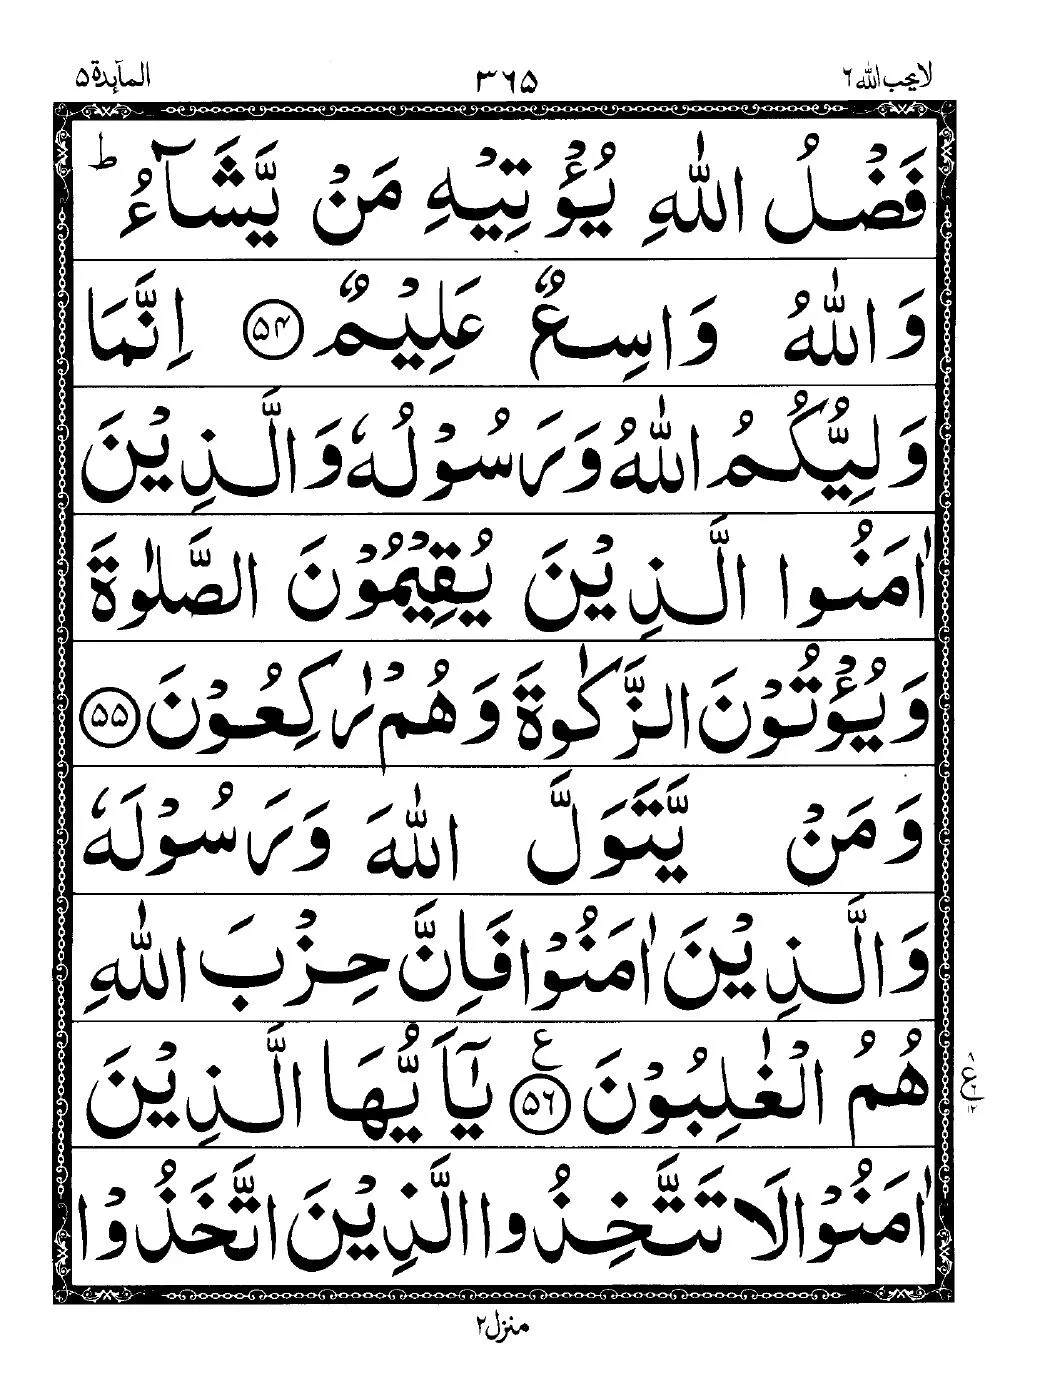 لا یحب الله ۶
۳۶۵
المآىدة ۵
فَضْلُ اللّٰهِ يُؤْتِيْهِ مَنْ يَّشَآءُ ؕ
وَاللّٰهُ وَاسِعٌ عَلِيْمٌ ﴿۵۴﴾ اِنَّمَا
وَلِيُّكُمُ اللّٰهُ وَرَسُوْلُهٗ وَالَّذِيْنَ
اٰمَنُوا الَّذِيْنَ يُقِيْمُوْنَ الصَّلٰوةَ
وَيُؤْتُوْنَ الزَّكٰوةَ وَهُمْ رٰكِعُوْنَ ﴿۵۵﴾
وَمَنْ يَّتَوَلَّ اللّٰهَ وَرَسُوْلَهٗ
وَالَّذِيْنَ اٰمَنُوْا فَاِنَّ حِزْبَ اللّٰهِ
هُمُ الْغٰلِبُوْنَ ﴿۵۶﴾ ع يٰۤاَيُّهَا الَّذِيْنَ
اٰمَنُوْا لَا تَتَّخِذُوا الَّذِيْنَ اتَّخَذُوْا
۸
ع
۱۲
منزل ۲